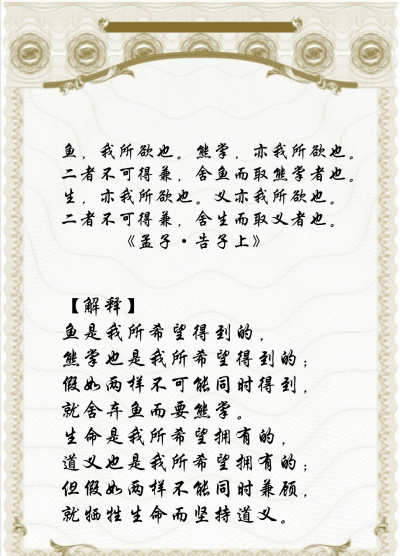 鱼，我所欲也。熊掌，亦我所欲也。
二者不可得兼，舍鱼而取熊掌者也。
生，亦我所欲也。义亦我所欲也。
二者不可得兼，舍生而取义者也。
《孟子·告子上》
【解释】
鱼是我所希望得到的，
熊掌也是我所希望得到的；
假如两样不可能同时得到，
就舍弃鱼而要熊掌。
生命是我所希望拥有的，
道义也是我所希望拥有的；
但假如两样不能同时兼顾，
就牺牲生命而坚持道义。